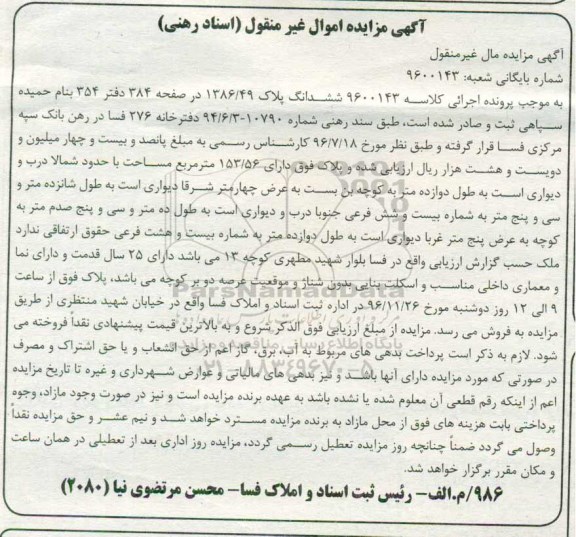 آگهی مزایده اموال غیر منقول (اسناد رهنی)
آگهی مزایده مال غیرمنقول
شماره بایگانی شعبه: ۹۶۰۰۱۴۳
به موجب پرونده اجرائی کلاسه ۹۶۰۰۱۴۳ ششدانگ پلاک ۱۳۸۶/۴۹ در صفحه ۳۸۴ دفتر ۳۵۴ بنام حمیده
سپاهی ثبت و صادر شده است، طبق سند رهنی شماره ۱۰۷۹۰-۹۴/۶/۳ دفترخانه ۲۷۶ فسا در رهن بانک سپه
مرکزی فسا قرار گرفته و طبق نظر مورخ ۹۶/۷/۱۸ کارشناس رسمی به مبلغ پانصد و بیست و چهار میلیون و
دویست و هشت هزار ریال ارزیابی شده و پلاک فوق دارای ۱۵۳/۵۶ مترمربع مساحت با حدود شمالا درب و
دیواری است به طول دوازده متر به کوچه بن بست به عرض چهارمتر شرقا دیواری است به طول شانزده متر و
سی و پنج متر به شماره بیست و شش فرعی جنوبا درب و دیواری است به طول ده متر و سی و پنج صدم متر به
کوچه به عرض پنج متر غربا دیواری است به طول دوازده متر به شماره بیست و هشت فرعی حقوق ارتفاقی ندارد
ملک حسب گزارش ارزیابی واقع در فسا بلوار شهید مطهری کوچه ۱۳ می باشد دارای ۲۵ سال قدمت و دارای نما
و معماری داخلی مناسب و اسکلت بنایی بدون شناژ و موقعیت عرصه دو بر کوچه می باشد، پلاک فوق از ساعت
۹ الی ۱۲ روز دوشنبه مورخ ۹۶/۱۱/۲۶ در اداره ثبت اسناد و املاک فسا واقع در خیابان شهید منتظری از طریق
مزایده به فروش می رسد. مزایده از مبلغ ارزیابی فوق الذکر شروع و به بالاترین قیمت پیشنهادی نقداً فروخته می
شود. لازم به ذکر است پرداخت بدهی های مربوط به آب، برق، گاز اعم از حق انشعاب و یا حق اشتراک و مصرف
در صورتی که مورد مزایده دارای آنها باشد و نیز بدهی های مالیاتی و عوارض شهرداری و غیره تا تاریخ مزایده
اعم از اینکه رقم قطعی آن معلوم شده یا نشده باشد به عهده برنده مزایده است و نیز در صورت وجود مازاد، وجوه
پرداختی بابت هزینه های فوق از محل مازاد به برنده مزایده مسترد خواهد شد و نیم عشر و حق مزایده نقداً
وصول می گردد ضمناً چنانچه روز مزایده تعطیل رسمی گردد، مزایده روز اداری بعد از تعطیلی در همان ساعت
و مکان مقرر برگزار خواهد شد.
۹۸۶/م.الف- رئیس ثبت اسناد و املاک فسا- محسن مرتضوی نیا (۲۰۸۰)
ParsNamadData
پایگاه اطلاع رسانی مناقصه و مزایده
۰۲۱-۸۸۳۴۹۶۷۰-۵